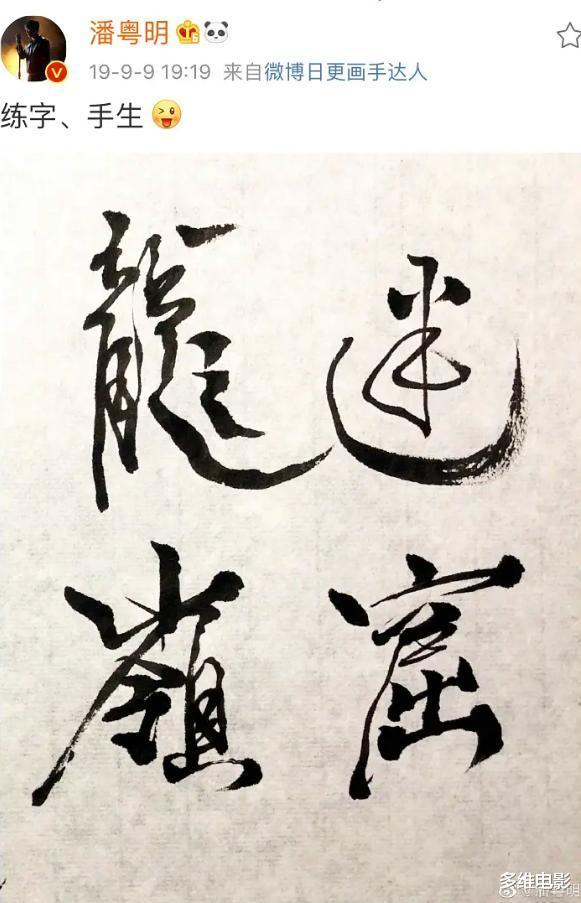 潘粤明
19-9-9 19:19 来自微博日更画手达人
练字、手生
龍嶺
迷窟
多维电影
@潘粤明